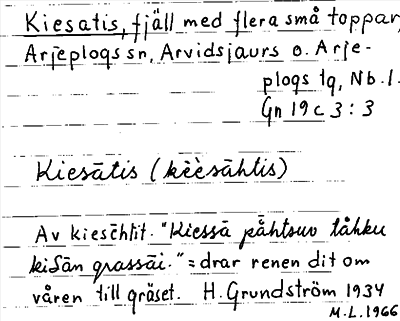 Kiesatis, fjäll med flera små toppar,
Arjeplogs sn, Arvidsjaurs o. Arje-
plogs tg, Nb. l.
Gn 19 c 3 : 3
Kiesātis (kèèsāhtis)
Av kiesēhtit. "Kiessā påhtsuv tåhku
kiSān grassāi." = drar renen dit om
våren till gräset. H. Grundström 1934
M.L. 1966